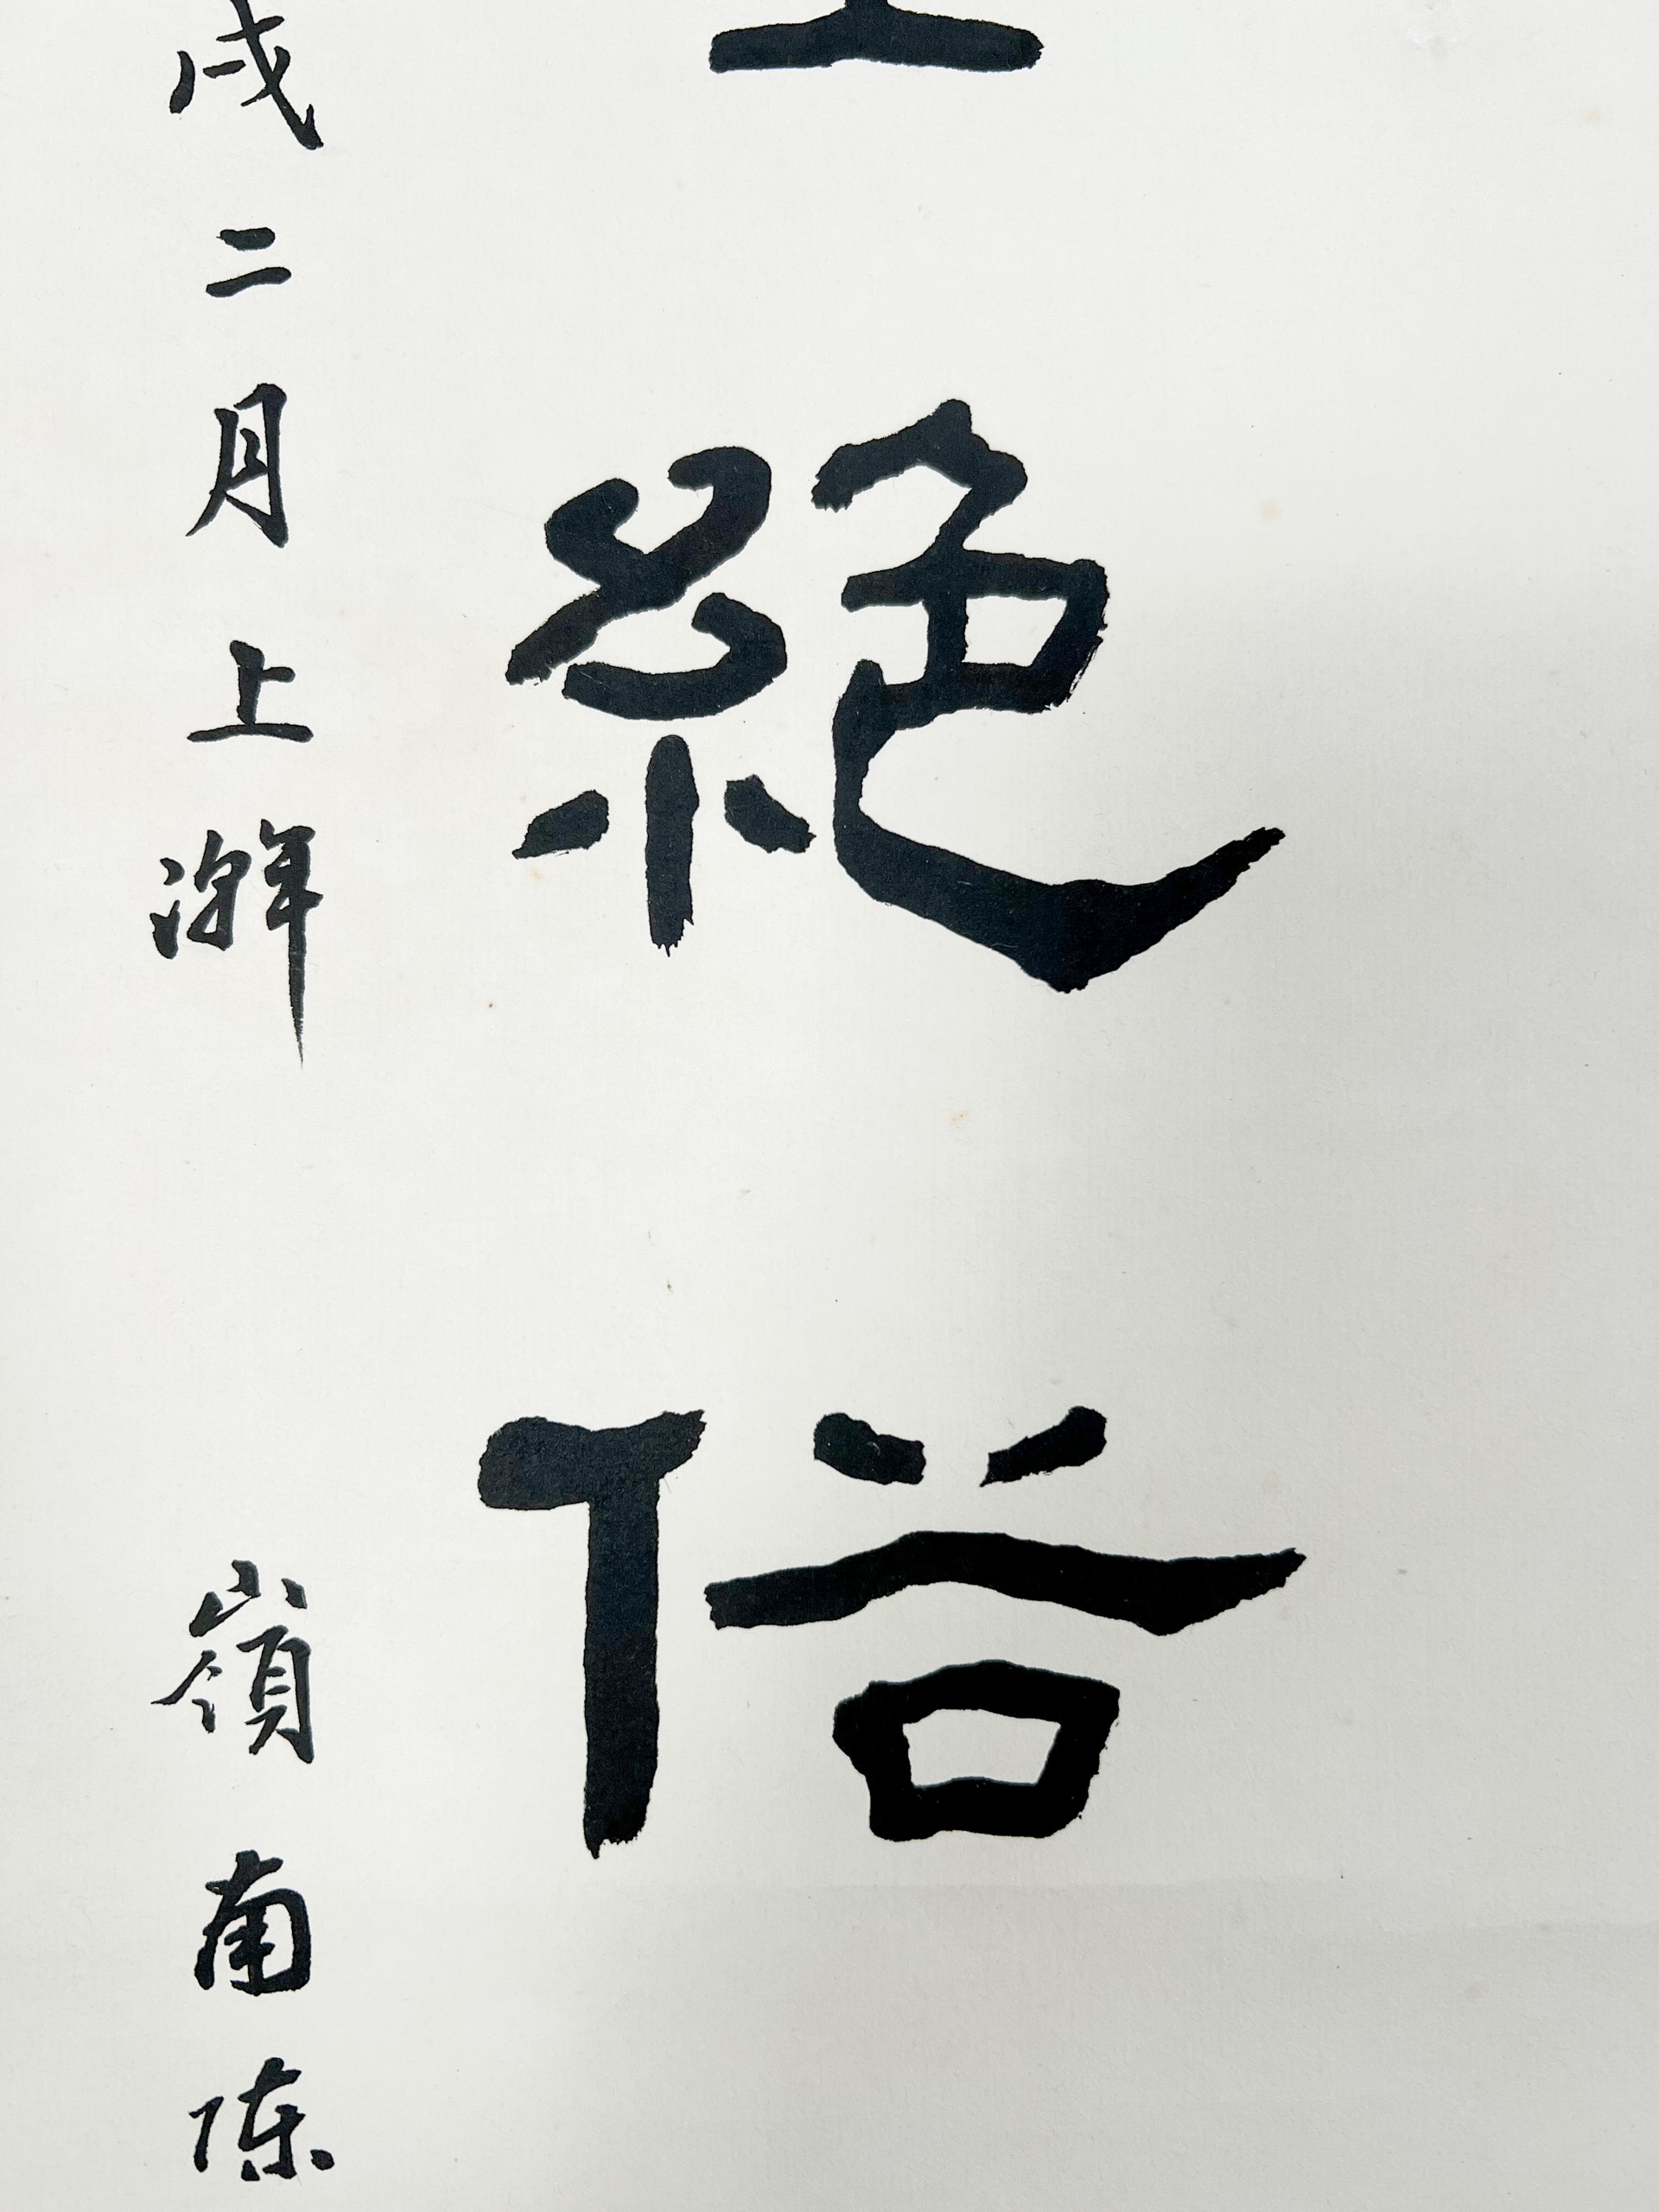 絕俗
戌二月上澣嶺南陳